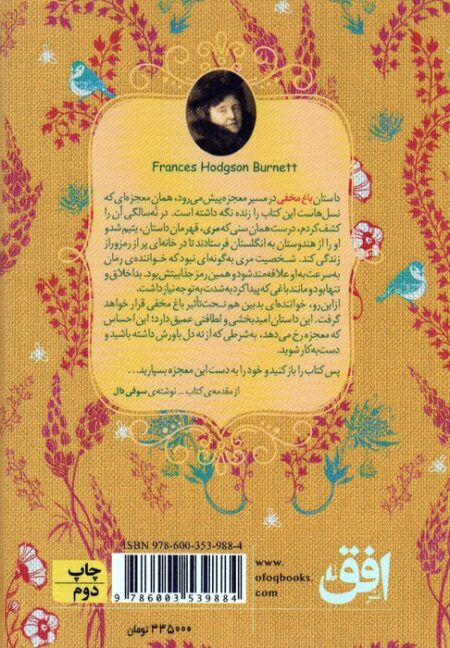 Frances Hodgson Burnett
داستان باغ مخفی در مسیر معجزه پیش می‌رود، همان معجزه‌ای که
نسل‌هاست این کتاب را زنده نگه داشته است. در نُه‌سالگی آن را
کشف کردم، درست همان سنی که مری، قهرمان داستان، یتیم شد و
او را از هندوستان به انگلستان فرستادند تا در خانه‌ای پر از رمز و راز
زندگی کند. شخصیت مری به‌گونه‌ای نبود که خواننده‌ی رمان
به‌سرعت به او علاقه‌مند شود و همین رمز جذابیتش بود. بداخلاق و
تنها بود و مانند باغی که پیدا کرد به شدت به توجه نیاز داشت.
از این‌رو، خواننده‌ای بدبین هم تحت‌تأثیر باغ مخفی قرار خواهد
گرفت. این داستان امیدبخشی و لطافتی عمیق دارد؛ این احساس
که معجزه رخ می‌دهد، به‌شرطی که از ته دل باورش داشته باشید و
دست‌به‌کار شوید.
پس کتاب را باز کنید و خود را به دست این معجزه بسپارید...
از مقدمه‌ی کتاب _ نوشته‌ی سوفی دال
ISBN 978-600-353-988-4
9 786003 539884
۳۳۵۰۰۰ تومان
چاپ
دوم
www.
ofoqbooks.
com
افق